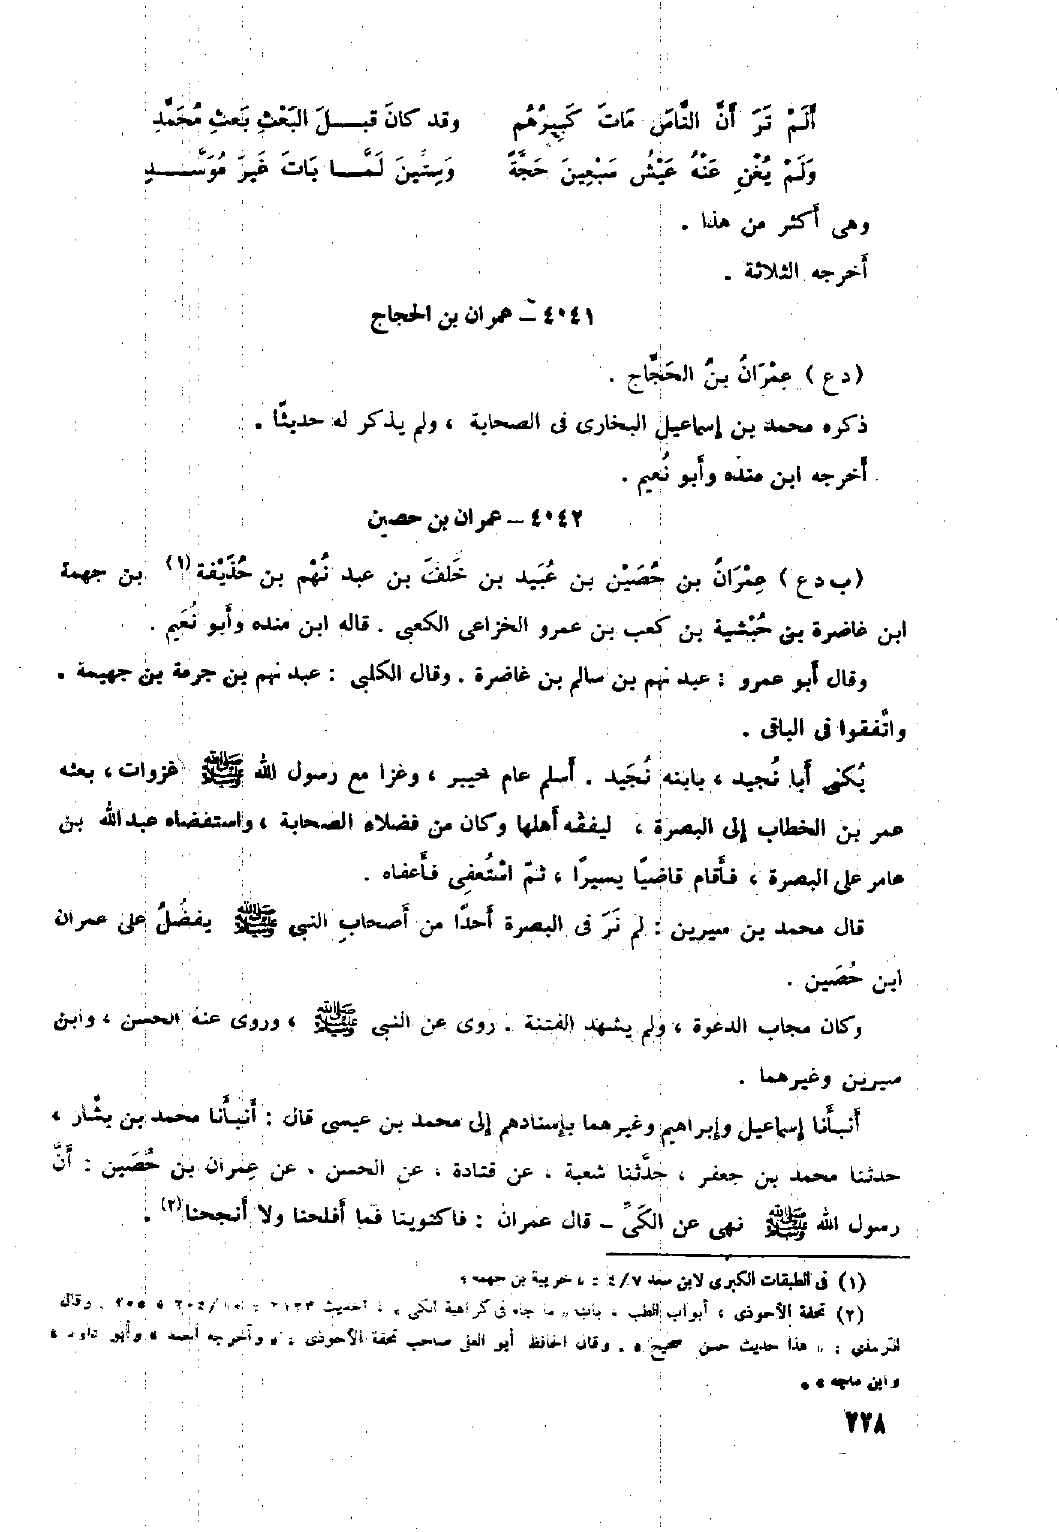 أَلَمْ تَرَ أَنَّ النَّاسَ مَاتَ كَبِيرُهُم وقد كانَ قبـلَ البَعْثِ بَعثِ مُحَمَّدِ
وَلَمْ يُغْنِ عَنْهُ عَيْشُ سَبْعِينَ حَجَّةً وَسِتِّينَ لَمَّـا بَاتَ غَيرَ مُوَسَّـدِ
وهى أكثر من هذا .
أخرجه الثلاثة .
٤٠٤١ – عمران بن الحجاج
( د ع ) عِمْرَانُ بنُ الحَجَّاج .
ذكره محمد بن إسماعيل البخارى فى الصحابة ، ولم يذكر له حديثًا .
أخرجه ابن منده وأبو نُعيم .
٤٠٤٢ – عمران بن حصين
( ب د ع ) عِمْرَانُ بن حُصَيْن بن عُبَيد بن خَلَفَ بن عبد نُهْم بن حُذَيْفة (١) بن جهمة
ابن غاضرة بن حُبْشية بن كعب بن عمرو الخزاعى الكعبى . قاله ابن منده وأبو نُعَيم .
وقال أبو عمرو : عبد نهم بن سالم بن غاضرة . وقال الكلبى : عبد نهم بن جرمة بن جهيمة .
واتَّفقوا فى الباقى .
يُكنى أبا نُجيد ، بابنه نُجَيد . أسلم عام خيبر ، وغزا مع رسول الله ﷺ غزوات ، بعثه
عمر بن الخطاب إلى البصرة ، ليفقِّه أهلها وكان من فضلاء الصحابة ، واستقضاه عبد الله بن
عامر على البصرة ، فأقام قاضيًا يسيرًا ، ثمّ اسْتُعفِى فأعفاه .
قال محمد بن سيرين : لم نَرَ فى البصرة أحدًا من أصحابِ النبى ﷺ يفضُلُ على عمران
ابن حُصَين .
وكان مجاب الدعوة ، ولم يشهد الفتنة . روى عن النبى ﷺ ، وروى عنه الحسن ، وابن
سيرين وغيرهما .
أنبأنا إسماعيل وإبراهيم وغيرهما بإسنادهم إلى محمد بن عيسى قال : أنبأنا محمد بن بشَّار ،
حدثنا محمد بن جعفر ، حدَّثنا شعبة ، عن قتادة ، عن الحسن ، عن عِمران بن حُصَين : أنَّ
رسول الله ﷺ نهى عن الكَىِّ – قال عمران : فاكتوينا فما أفلحنا ولا أنجحنا (٢) .
(١) فى الطبقات الكبرى لابن سعد ٤/٧ : « خريبة بن جهمه »
(٢) تحفة الأحوذى ، أبواب الطب ، باب « ما جاء فى كراهية الكى » ، الحديث . وقال
الترمذى : « هذا حديث حسن صحيح » . وقال الحافظ أبو العلى صاحب تحفة الأحوذى : « وأخرجه أحمد ، وأبو داود ،
وابن ماجه » .
٢٢٨